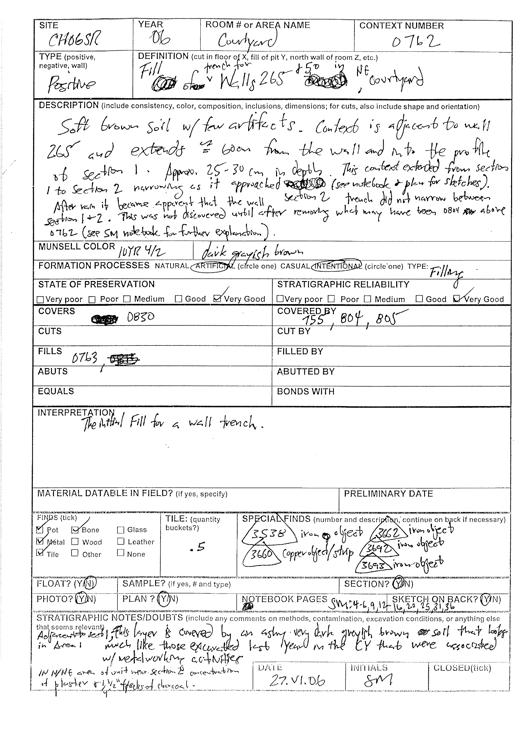 SITE YEAR ROOM # or AREA NAME CONTEXT NUMBER
CH06SR 06 Courtyard 0762
TYPE (positive, negative, wall) DEFINITION (cut in floor of X, fill of pit Y, north wall of room Z, etc.)
Positive Fill of trench for Walls 265 + 50 in NE, courtyard
DESCRIPTION (include consistency, color, composition, inclusions, dimensions; for cuts, also include shape and orientation)
Soft brown soil w/ few artifacts. Context is adjacent to wall
265 and extends ≈ 60cm from the wall and into the profile
of section 1. Approx. 25-30 cm in depth. This context extended from section
1 to section 2 narrowing as it approached (see notebook + plan for sketches).
After rain it became apparent that the wall section 2 trench did not narrow between
section 1 + 2. This was not discovered until after removing what may have been 0804 above
0762 (see SM notebook for further explanation).
MUNSELL COLOR 10YR 4/2 dark grayish brown
FORMATION PROCESSES NATURAL ARTIFICIAL (circle one) CASUAL INTENTIONAL (circle one) TYPE: Filling
STATE OF PRESERVATION STRATIGRAPHIC RELIABILITY
Very poor Poor Medium Good Very Good Very poor Poor Medium Good Very Good
COVERS 0830 COVERED BY 755, 804, 805
CUTS CUT BY
FILLS 0763, FILLED BY
ABUTS ABUTTED BY
EQUALS BONDS WITH
INTERPRETATION
The Fill for a wall trench.
MATERIAL DATABLE IN FIELD? (if yes, specify) PRELIMINARY DATE
FINDS (tick) TILE: (quantity buckets?) SPECIAL FINDS (number and description, continue on back if necessary)
Pot Bone Glass 3538 iron object 3662 iron object
Metal Wood Leather .5 3660 copper object/strip 3692 iron object
Tile Other None 3693 iron object
FLOAT? (Y/N) SAMPLE? (if yes, # and type) SECTION? (Y/N)
PHOTO? (Y/N) PLAN? (Y/N) NOTEBOOK PAGES SM: 4-6, 9, 12, 16, 20, 25, 31, 36 SKETCH ON BACK? (Y/N)
STRATIGRAPHIC NOTES/DOUBTS (include any comments on methods, contamination, excavation conditions, or anything else that seems relevant)
Adjacent to sect 1, this layer is covered by an ashy very dark greyish brown soil that looks
in Area 1 much like those excavated last year in the CY that were associated
w/ metalworking activities
IN N/NE area of unit near section 2 concentration
of plaster + flecks of charcoal.
DATE INITIALS CLOSED(tick)
27.VI.06 SM